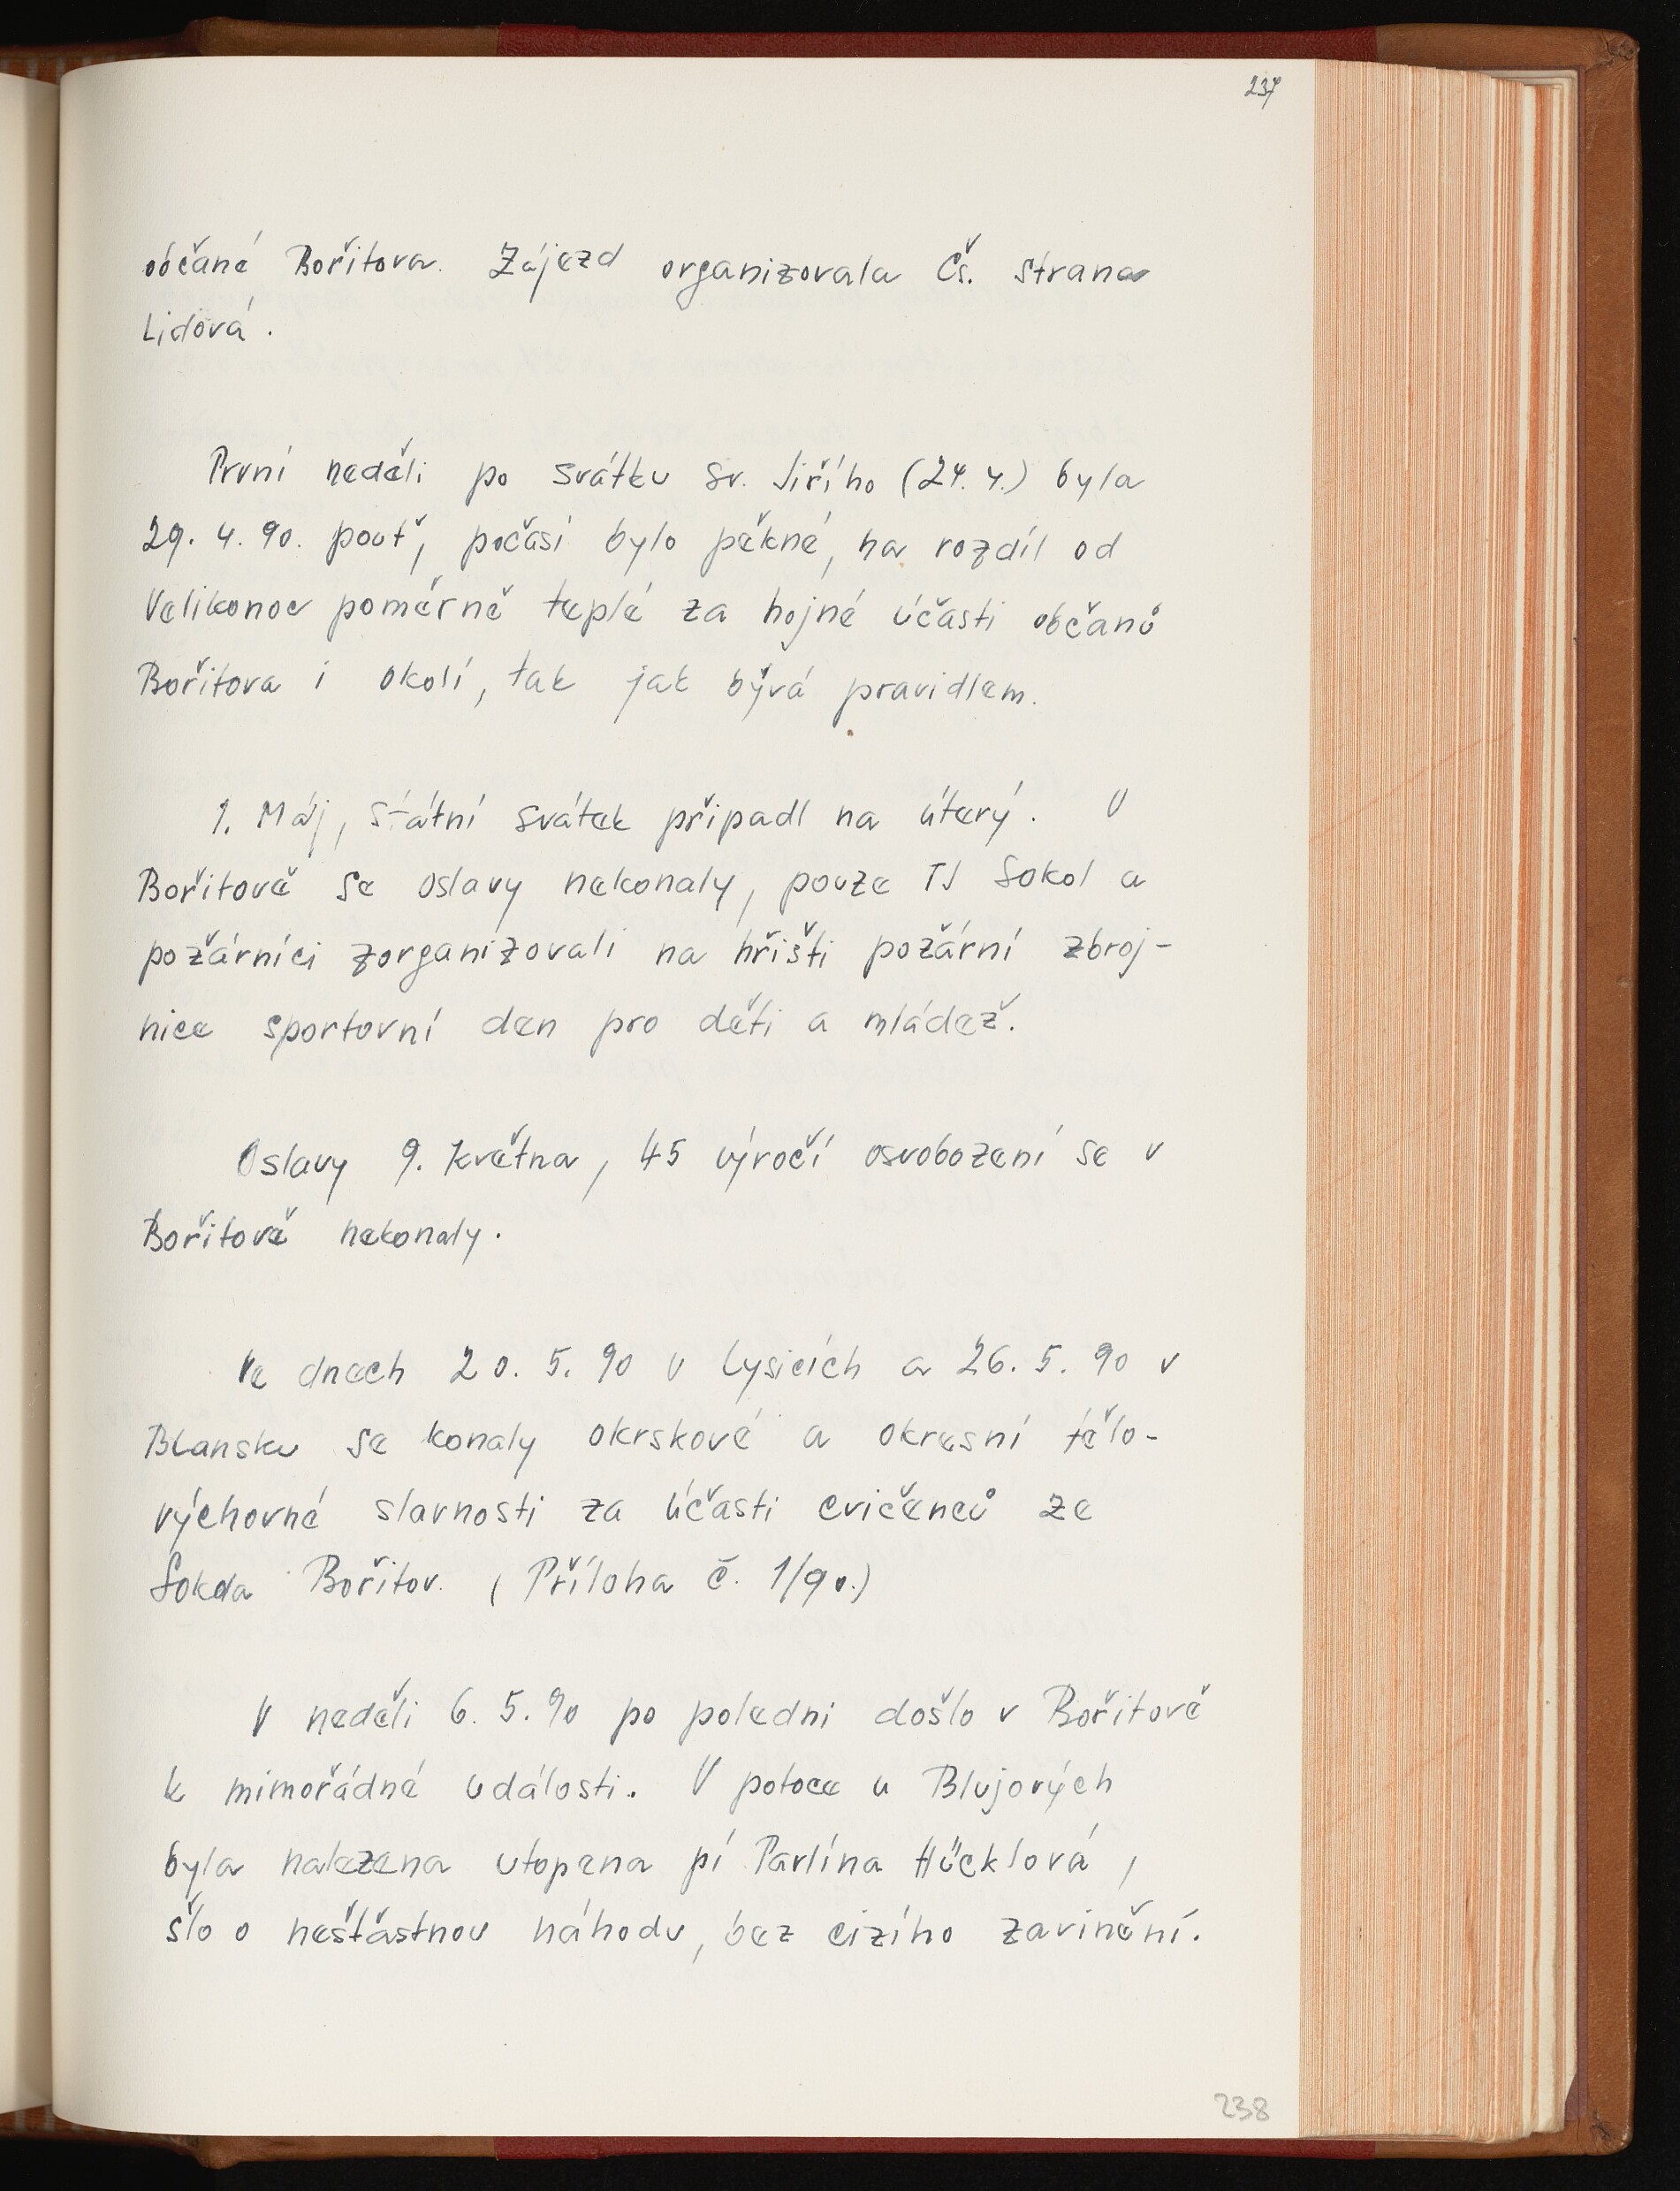 237
občané Bořitova. Zájezd organizovala Čs. strana
Lidová.
První neděli po svátku sv. Jiřího (24. 4.) byla
29. 4. 90. pouť, počasí bylo pěkné, na rozdíl od
Velikonoc poměrně teplé za hojné účasti občanů
Bořitova i okolí, tak jak bývá pravidlem.
1. Máj, státní svátek připadl na úterý. V
Bořitově se oslavy nekonaly, pouze TJ Sokol a
požárníci zorganizovali na hřišti požární zbroj-
nice sportovní den pro děti a mládež.
Oslavy 9. května, 45 výročí osvobození se v
Bořitově nekonaly.
Ve dnech 20. 5. 90 v Lysicích a 26. 5. 90 v
Blansku se konaly okrskové a okresní tělo-
výchovné slavnosti za účasti cvičenců ze
Sokola Bořitov. (Příloha č. 1/90.)
V neděli 6. 5. 90 po poledni došlo v Bořitově
k mimořádné události. V potoce u Blujových
byla nalezena utopena pí Pavlína Hücklová,
šlo o nešťastnou náhodu, bez cizího zavinění.
238